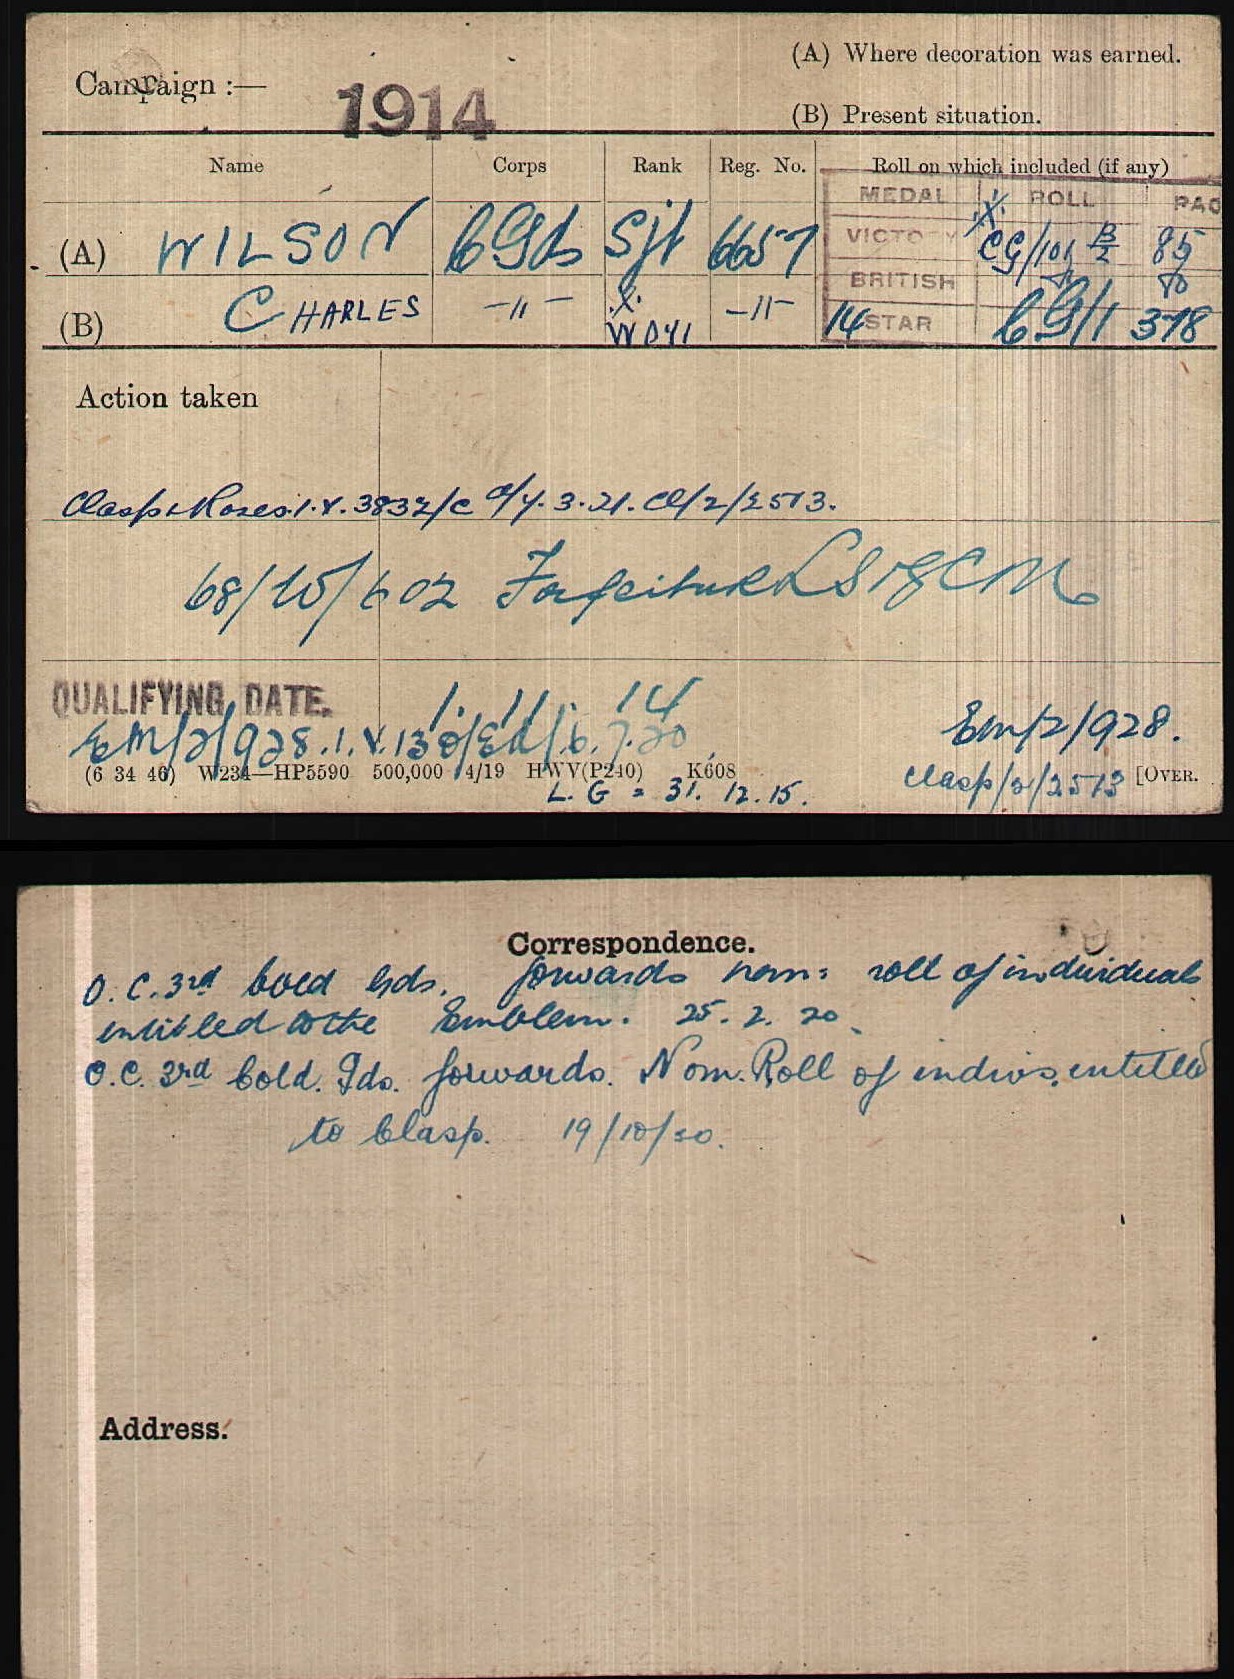 (A) Where decoration was earned.
Campaign :—
1914
(B) Present situation.
Name Corps Rank Reg. No. Roll on which included (if any)
MEDAL ROLL PAG
(A) WILSON C Gds Sjt 6657 VICTO Y CG/101 B/2 85
BRITISH do do
(B) CHARLES -"- X WOII -"- 14 STAR CG/1 378
Action taken
Clasp & Roses. 1.V. 3832/C d/4.3.21. Cl/2/2513.
68/15/602 Forfeiture LS & GCM
QUALIFYING DATE. 1. 11. 14
EM/2/928. 1. V. 130/Ed/. 6. 7. 20 Em/2/928.
(6 34 46) W234—HP5590 500,000 4/19 HWV(P240) K608
L. G = 31. 12. 15. Clasp/2/2513 [OVER.
Correspondence.
O. C. 3rd Cold Gds. forwards nom: roll of individuals
entitled to the Emblem. 25. 2. 20.
O.C. 3rd Cold. Gds. forwards. Nom. Roll of indivs. entitled
to Clasp. 19/10/20.
Address.